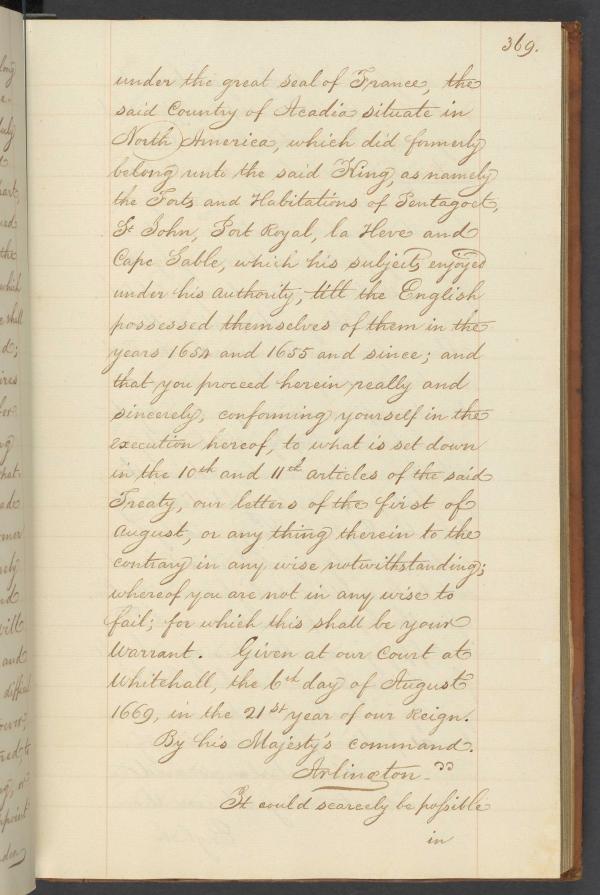 369.
under the great seal of France, the
said Country of Acadia situate in
North America, which did formerly
belong unto the said King, as namely
the Forts and Habitations of Pentagoet,
St John, Port Royal, la Heve and
Cape Sable, which his subjects enjoyed
under his authority, till the English
possessed themselves of them in the
years 1654 and 1655 and since; and
that you proceed herein really and
sincerely, conforming yourself in the
execution hereof, to what is set down
in the 10th and 11th articles of the said
Treaty, our letters of the first of
August, or any thing therein to the
contrary in any wise notwithstanding;
whereof you are not in any wise to
fail; for which this shall be your
Warrant. Given at our Court at
Whitehall, the 6th day of August
1669, in the 21st year of our Reign.
By his Majesty's command.
Arlington
It could scarcely be possible
in